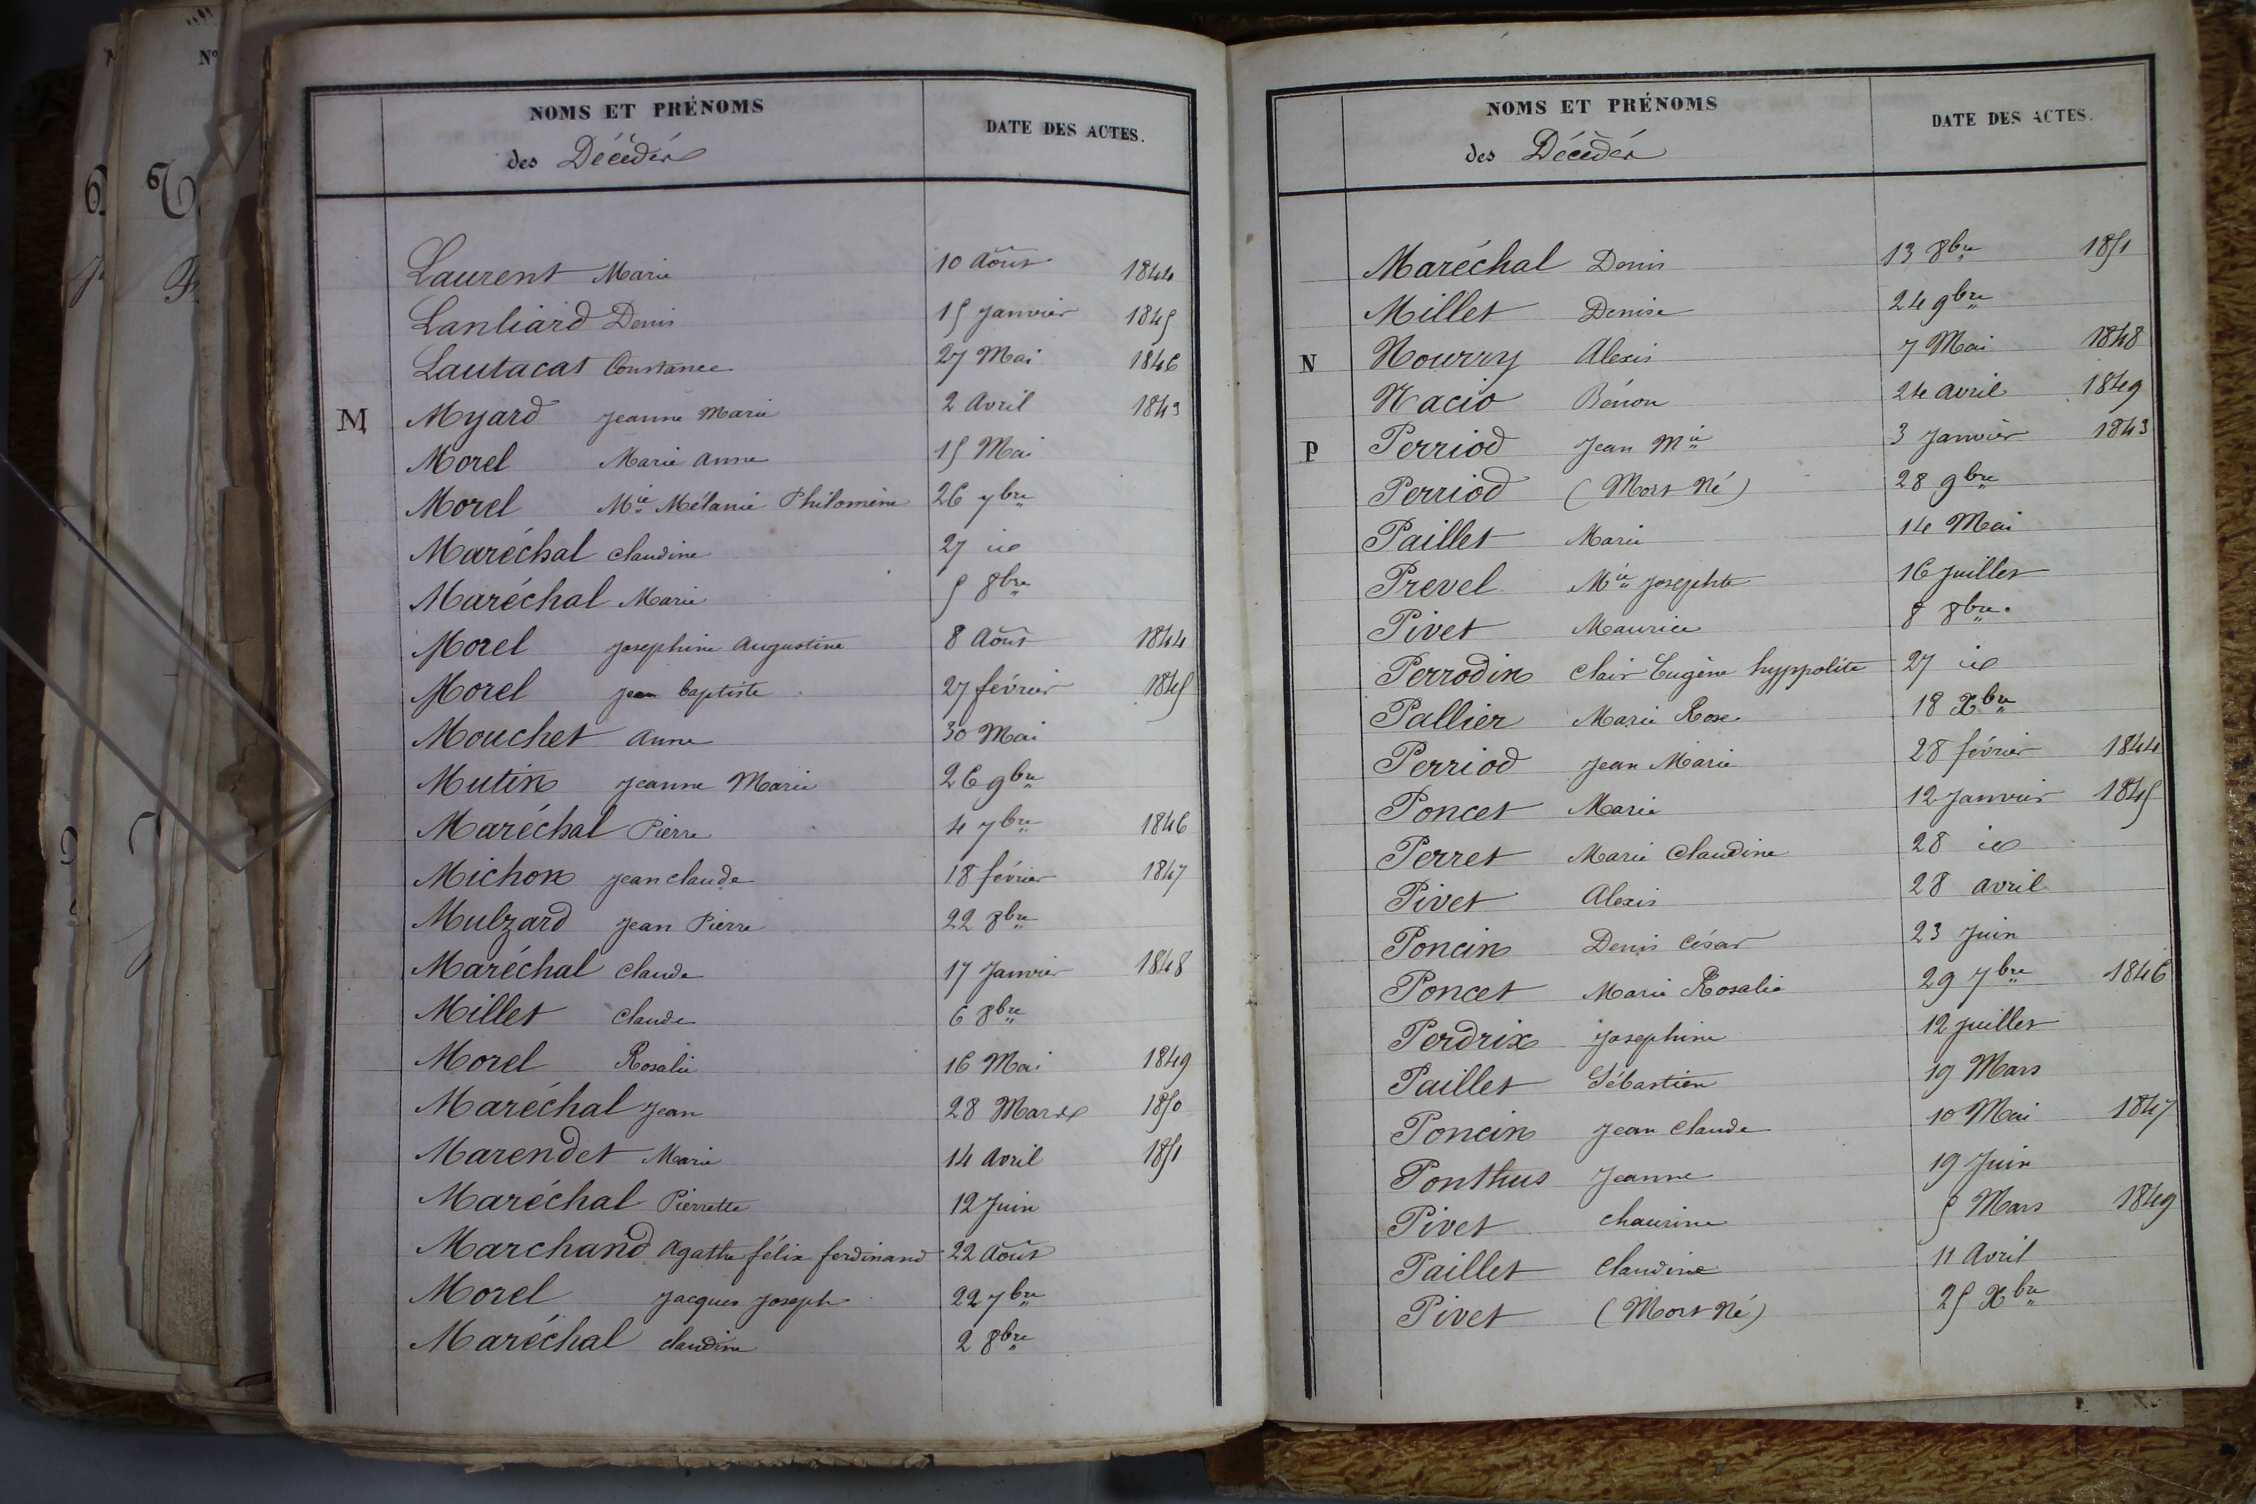 NOMS ET PRÉNOMS DATE DES ACTES.
des Décédés
Laurent Marie 10 Août 1844
Lanliard Denis 15 Janvier 1845
Lautacat Constance 27 Mai 1846
M Myard Jeanne Marie 2 Avril 1843
Morel Marie Anne 15 Mai
Morel Mie Mélanie Philomène 26 7bre
Maréchal Claudine 27 id
Maréchal Marie 5 8bre
Morel Josephine Augustine 8 Août 1844
Morel Jean Baptiste 27 février 1845
Mouchet Anne 30 Mai
Mutin Jeanne Marie 26 9bre
Maréchal Pierre 4 7bre 1846
Michon Jean Claude 18 février 1847
Mulzard Jean Pierre 22 8bre
Maréchal Claude 17 Janvier 1848
Millet Claude 6 8bre
Morel Rosalie 16 Mai 1849
Maréchal Jean 28 Mars 1850
Marendet Marie 14 Avril 1851
Maréchal Pierrette 12 Juin
Marchand Agathe félix ferdinand 22 Août
Morel Jacques Joseph 22 7bre
Maréchal Claudine 2 8bre
NOMS ET PRÉNOMS DATE DES ACTES.
des Décédés
Maréchal Denis 13 8bre 1851
Millet Denise 24 9bre
N Nourry Alexis 7 Mai 1848
Nacio Bénon 24 Avril 1849
P Perriod Jean Mie 3 Janvier 1843
Perriod (Mort Né) 28 9bre
Paillet Marie 14 Mai
Prevel Mie Josephte 16 Juillet
Pivet Maurice 8 8bre.
Perrodin Clair Eugène hyppolite 27 id
Pallier Marie Rose 18 Xbre
Perriod Jean Marie 28 février 1844
Poncet Marie 12 Janvier 1845
Perret Marie Claudine 28 id
Pivet Alexis 28 avril
Poncin Denis César 23 Juin
Poncet Marie Rosalie 29 7bre 1846
Perdrix Josephine 12 Juillet
Paillet Sébastien 19 Mars
Poncin Jean Claude 10 Mai 1847
Ponthus Jeanne 19 Juin
Pivet 5 Mars 1849
Paillet Claudine 11 Avril
Pivet (Mort Né) 25 Xbre